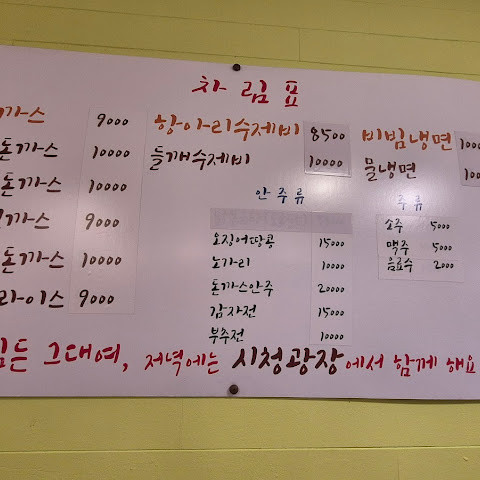 차림표
까스 9000
돈까스 10000
돈까스 10000
까스 9000
돈까스 10000
라이스 9000
항아리수제비 8500
들깨수제비 10000
비빔냉면 1000
물냉면 100
안주류
오징어땅콩 15000
노가리 10000
돈까스안주 20000
감자전 15000
부추전 10000
주류
소주 5000
맥주 5000
음료수 2000
힘든 그대여, 저녁에는 시청광장에서 함께 해요